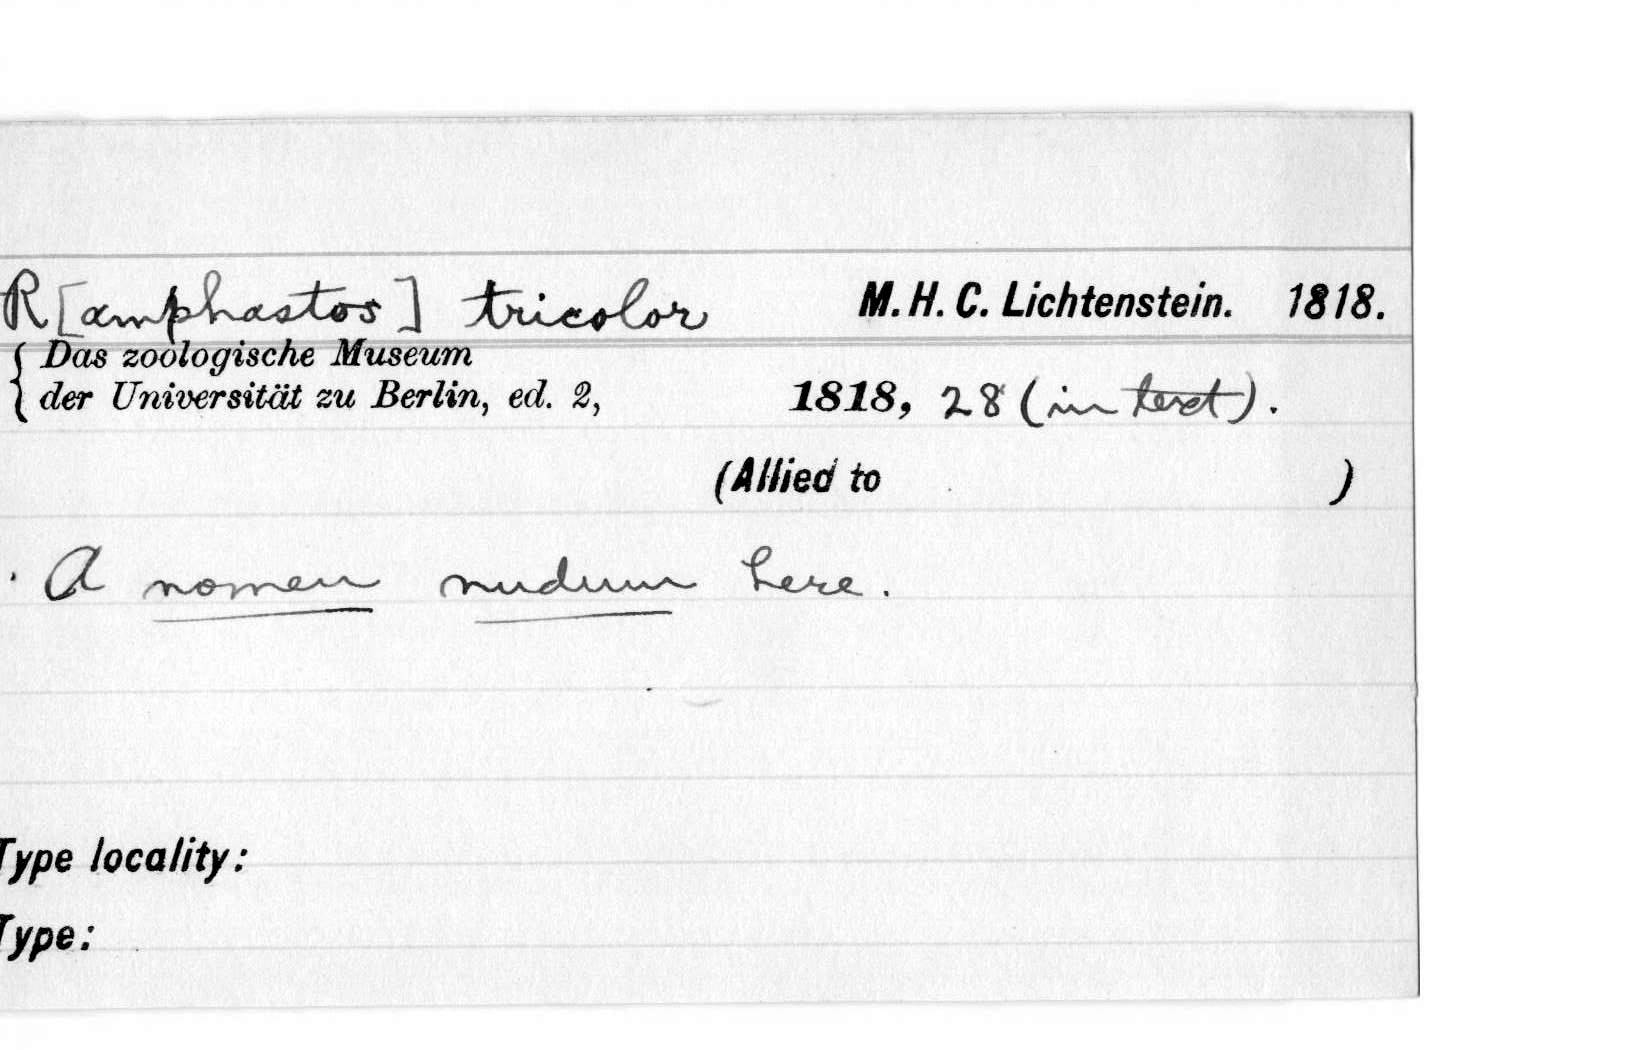 R[amphastos] tricolor M. H. C. Lichtenstein. 1818.
{ Das zoologische Museum
der Universität zu Berlin, ed. 2, 1818, 28 (in text).
(Allied to )
A nomen nudum here.
Type locality:
Type: